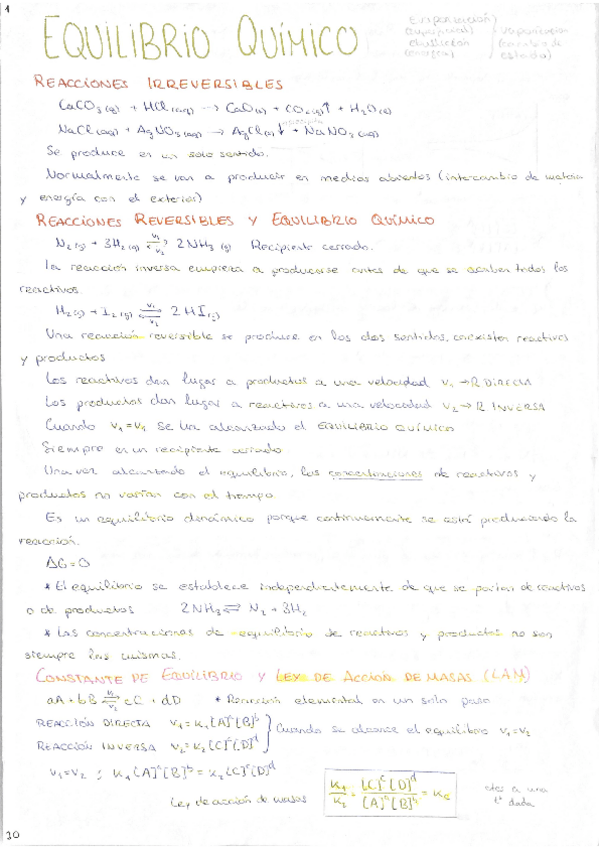 1
EQUILIBRIO QUÍMICO
Evaporación
(superficial)
Ebullición
(energía)
Vaporización
(cambio de
estado)
REACCIONES IRREVERSIBLES
CaCO₃(s) + HCl(aq) → CaO(s) + CO₂(g)↑ + H₂O(l)
NaCl(aq) + AgNO₃(aq) → AgCl(s)↓ + NaNO₃(aq)
Se produce en un solo sentido.
Normalmente se van a producir en medios abiertos (intercambio de materia
y energía con el exterior)
REACCIONES REVERSIBLES Y EQUILIBRIO QUÍMICO
N₂(g) + 3H₂(g) ⇌ 2NH₃(g) Recipiente cerrado.
v₁
v₂
La reacción inversa empieza a producirse antes de que se acaben todos los
reactivos.
H₂(g) + I₂(g) ⇌ 2HI(g)
v₁
v₂
Una reacción reversible se produce en los dos sentidos, coexisten reactivos
y productos
Los reactivos dan lugar a productos a una velocidad v₁ → R DIRECTA
Los productos dan lugar a reactivos a una velocidad v₂ → R INVERSA
Cuando v₁ = v₂ se ha alcanzado el EQUILIBRIO QUÍMICO
Siempre en un recipiente cerrado.
Una vez alcanzado el equilibrio, las concentraciones de reactivos y
productos no varían con el tiempo.
Es un equilibrio dinámico porque continuamente se está produciendo la
reacción.
ΔG=0
* El equilibrio se establece independientemente de que se partan de reactivos
o de productos 2NH₃ ⇌ N₂ + 3H₂
* Las concentraciones de equilibrio de reactivos y productos no son
siempre las mismas.
CONSTANTE DE EQUILIBRIO Y LEY DE ACCIÓN DE MASAS (LAM)
aA + bB ⇌ cC + dD * Reacción elemental en un solo paso
v₁
v₂
REACCIÓN DIRECTA v₁ = K₁[A]ᵃ[B]ᵇ
REACCIÓN INVERSA v₂ = K₂[C]ᶜ[D]ᵈ
Cuando se alcance el equilibrio v₁ = v₂
v₁ = v₂ ; K₁[A]ᵃ[B]ᵇ = K₂[C]ᶜ[D]ᵈ
Ley de acción de masas
K₁/K₂ = [C]ᶜ[D]ᵈ/[A]ᵃ[B]ᵇ = Kc
a una
tª dada
30